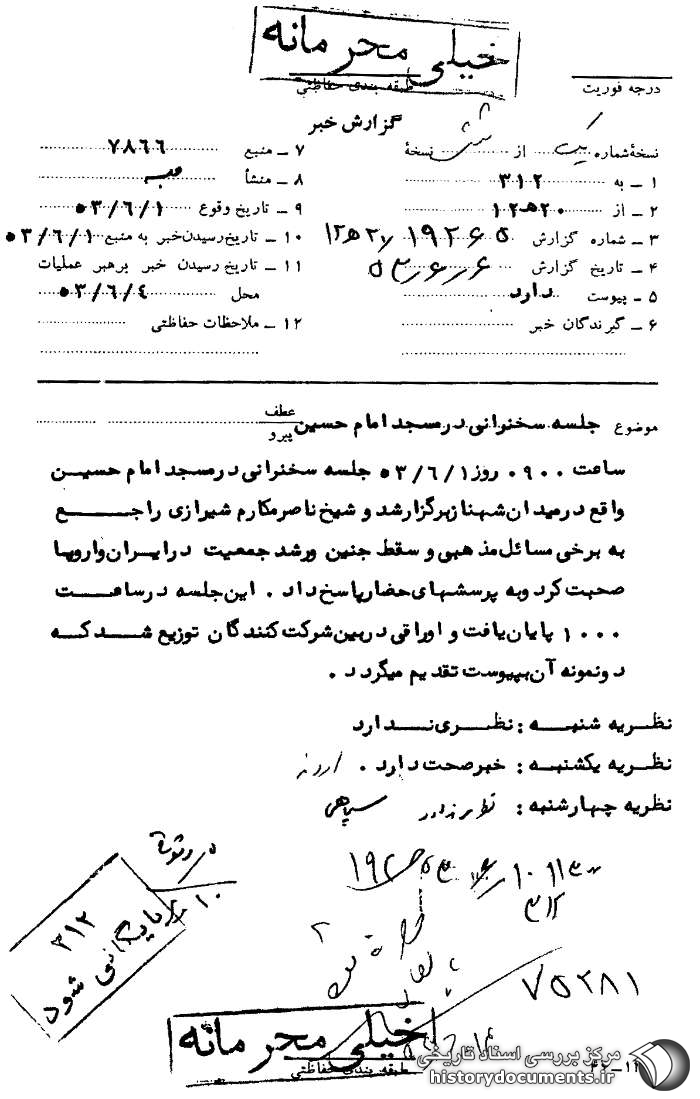 خیلی محرمانه
طبقه بندی حفاظتی
درجه فوریت
گزارش خبر
نسخهٔ شماره یک از شش نسخهٔ
۱ ـ به ۳۱۲
۲ ـ از ۲۰ هـ ۱۲
۳ ـ شماره گزارش ۱۹۲۶۵ / ۲۰ هـ ۱۲
۴ ـ تاریخ گزارش ۵۳/۶/۶
۵ ـ پیوست دارد
۶ ـ گیرندگان خبر
۷ ـ منبع ۷۸۶۶
۸ ـ منشأ
۹ ـ تاریخ وقوع ۵۳/۶/۱
۱۰ ـ تاریخ رسیدن خبر به منبع ۵۳/۶/۱
۱۱ ـ تاریخ رسیدن خبر برهبر عملیات
محل ۵۳/۶/۴
۱۲ ـ ملاحظات حفاظتی
موضوع جلسه سخنرانی در مسجد امام حسین
عطف
پیرو
ساعت ۰۹۰۰ روز ۵۳/۶/۱ جلسه سخنرانی در مسجد امام حسین
واقع در میدان شهناز برگزار شد و شیخ ناصر مکارم شیرازی راجع
به برخی مسائل مذهبی و سقط جنین و رشد جمعیت در ایران و اروپا
صحبت کرد و به پرسشهای حضار پاسخ داد . این جلسه در ساعت
۱۰۰۰ پایان یافت و اوراقی در بین شرکت کنندگان توزیع شد که
دو نمونه آن بپیوست تقدیم میگردد .
نظریه شنبه : نظری ندارد
نظریه یکشنبه : خبر صحت دارد .
نظریه چهارشنبه : نظری ندارد سپاهی
۳۱۲
۳۱۲
بایگانی شود
۷۵۲۸۱
خیلی محرمانه
طبقه بندی حفاظتی
مرکز بررسی اسناد تاریخی
historydocuments.ir